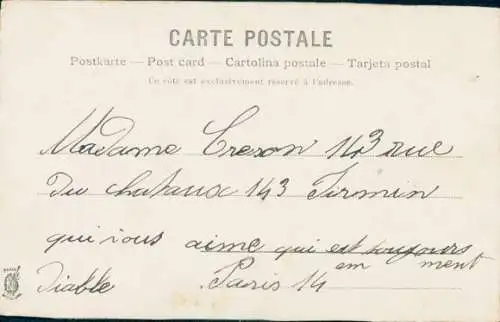 CARTE POSTALE
Postkarte — Post card — Cartolina postale — Tarjeta postal
Ce côté est exclusivement réservé à l'adresse.
Madame Creson 143 rue
Du chataux 143 Firmin
qui vous aime qui est toujours
em ment
Diable Paris 14